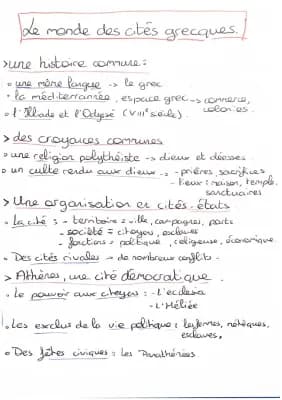 Le monde des cités grecques.
>une histoire commune:
• une même langue -> le grec
• la méditerranée, espace grec -> commerce,
colonies.
• l'Illiade et l'Odyssé (VIIIe siècle).
> des croyances communes
• une religion polythéiste -> dieux et déesses.
• un culte rendu aux dieux - - prières, sacrifices
- lieux: maison, temple,
sanctuaires
> Une organisation en cités-états
• La cité : - territoire = ville, campagnes, ports
- société = citoyens, esclaves
- fonctions = politique, religieuse, économique.
• Des cités rivales -> de nombreux conflits.
> Athènes, une cité démocratique.
• Le pouvoir aux citoyens : - l'ecclesia
- l'Héliée
• Les exclus de la vie politique : les femmes, métèques,
esclaves.
• Des fêtes civiques : les Panathénées